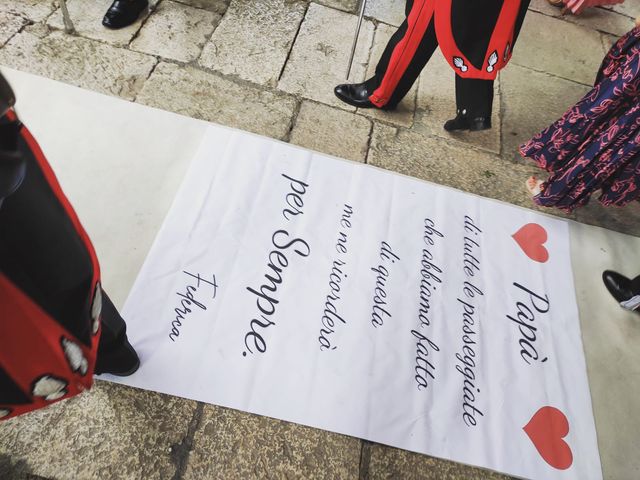 Papà
di tutte le passeggiate
che abbiamo fatto
di questa
me ne ricorderò
per Sempre.
Federica